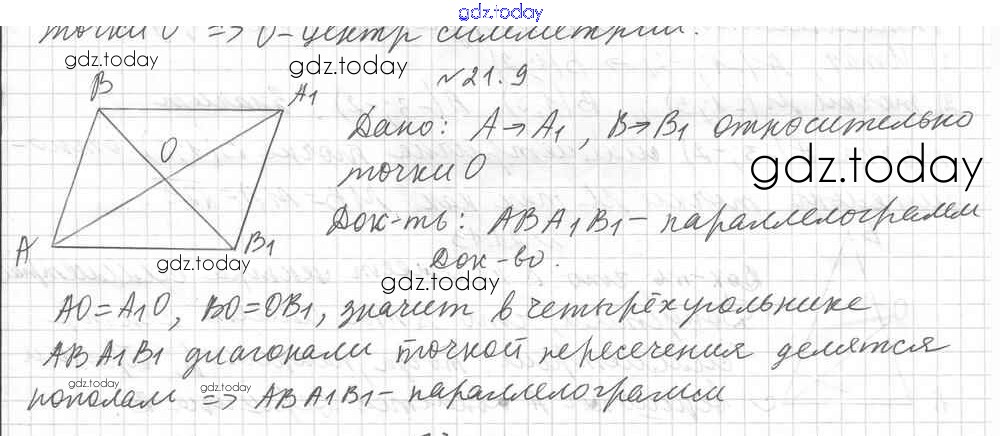 gdz.today
точки О => О - центр симметрии.
gdz.today
gdz.today
№21.9
B
A1
O
A
B1
Дано: A→A1, B→B1 относительно
точки О
gdz.today
Док-ть: ABA1B1 - параллелограмм
gdz.today
Док-во.
AO=A1O, BO=OB1, значит в четырёхугольнике
ABA1B1 диагонали точкой пересечения делятся
gdz.today
gdz.today
пополам => ABA1B1 - параллелограмм